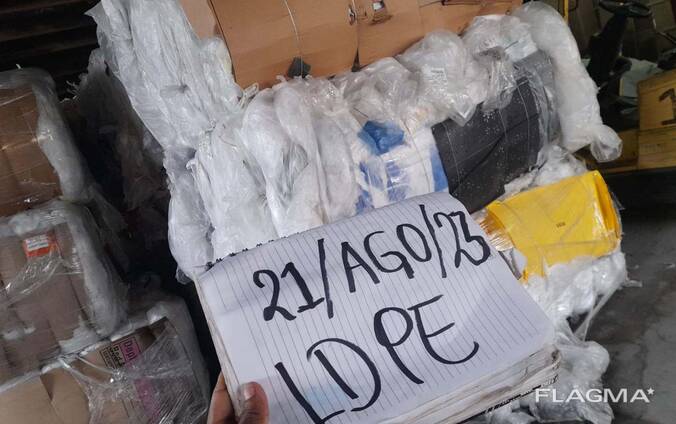 21/AGO/23
LDPE
FLAGMA*